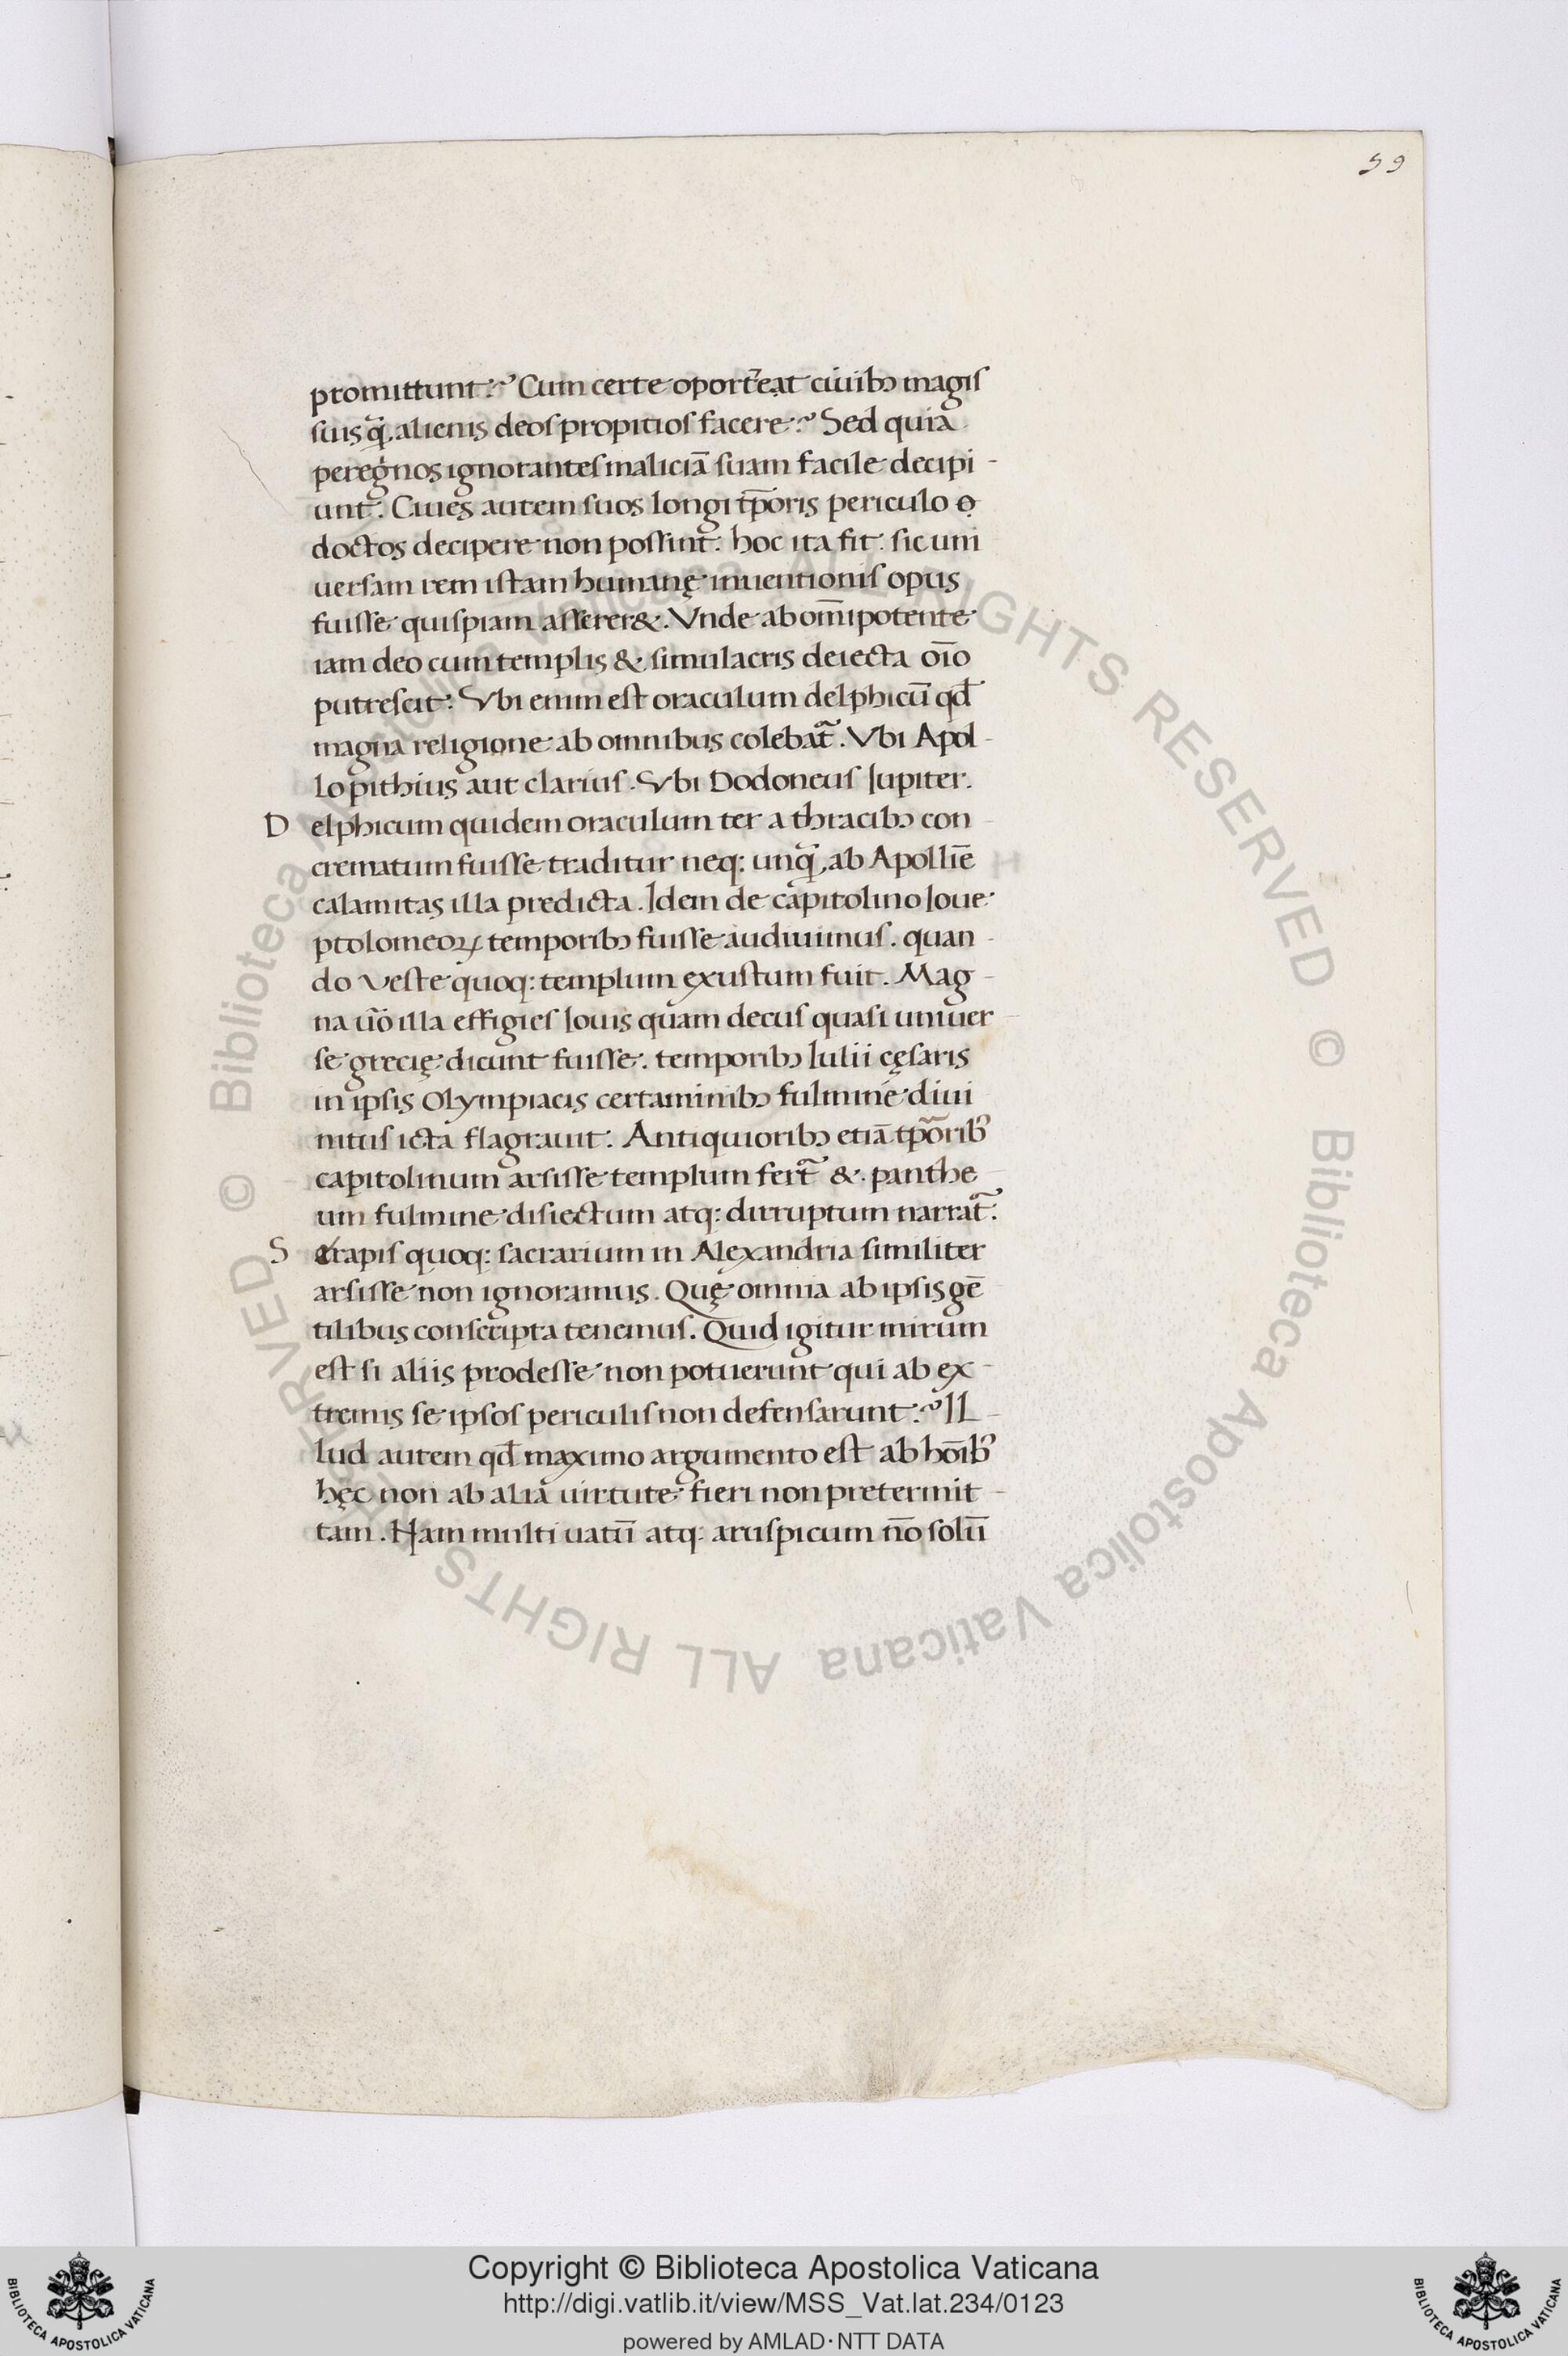 59
promittunt? Cum certe oporteat ciuibꝫ magis
suis q̃ alienis deos propitios facere? Sed quia
peregͥnos ignorantes maliciā suam facile decipi-
unt. Ciues autem suos longi tp̄oris periculo
doctos decipere non possint: hoc ita fit: sic uni
uersam rem istam humanę inuentionis opus
fuisse quispiam asserer&. Vnde ab om̄ipotente
iam deo cum templis & simulacris deiecta oīo
putrescit: Vbi enim est oraculum delphicū qđ
magna religione ab omnibus colebat̃. Vbi Apol-
lo pithius aut clarius. Vbi Dodoneus Iupiter.
Delphicum quidem oraculum ter a thracibꝫ con-
crematum fuisse traditur neq: unq̃ ab Apollīe
calamitas illa predicta. Idem de capitolino Ioue
ptolomeoꝝ temporibꝫ fuisse audiuimus. quan-
do Veste quoq: templum exustum fuit. Mag-
na ũo illa effigies Iouis quam decus quasi uniuer
se grecię dicunt fuisse: temporibꝫ Iulii cęsaris
in ipsis Olympiacis certaminibꝫ fulmine diui
nitus icta flagrauit: Antiquioribꝫ etiā tp̄oribꝰ
capitolinum arsisse templum fert̃ & panthe
um fulmine disiectum atq: dirruptum narrat̃:
Serapis quoq: sacrarium in Alexandria similiter
arsisse non ignoramus. Quę omnia ab ipsis gē
tilibus conscripta tenemus. Quid igitur mirum
est si aliis prodesse non potuerunt qui ab ex-
tremis se ipsos periculis non defensarunt? Il-
lud autem qđ maximo argumento est ab hoībꝰ
hęc non ab alia uirtute fieri non pretermit-
tam. Nam multi uatū atq: aruspicum nō solū
© Biblioteca Apostolica Vaticana ALL RIGHTS RESERVED © Biblioteca Apostolica Vaticana ALL RIGHTS RESERVED
Copyright © Biblioteca Apostolica Vaticana
http://digi.vatlib.it/view/MSS_Vat.lat.234/0123
powered by AMLAD·NTT DATA
BIBLIOTECA APOSTOLICA VATICANA
BIBLIOTECA APOSTOLICA VATICANA